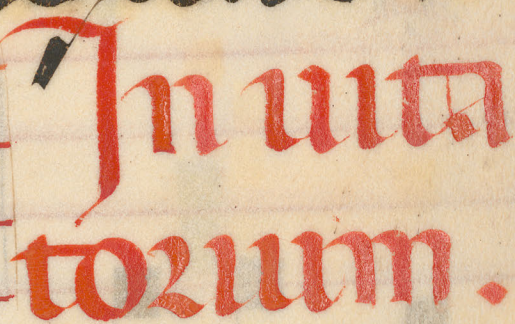 Inuita
torium.